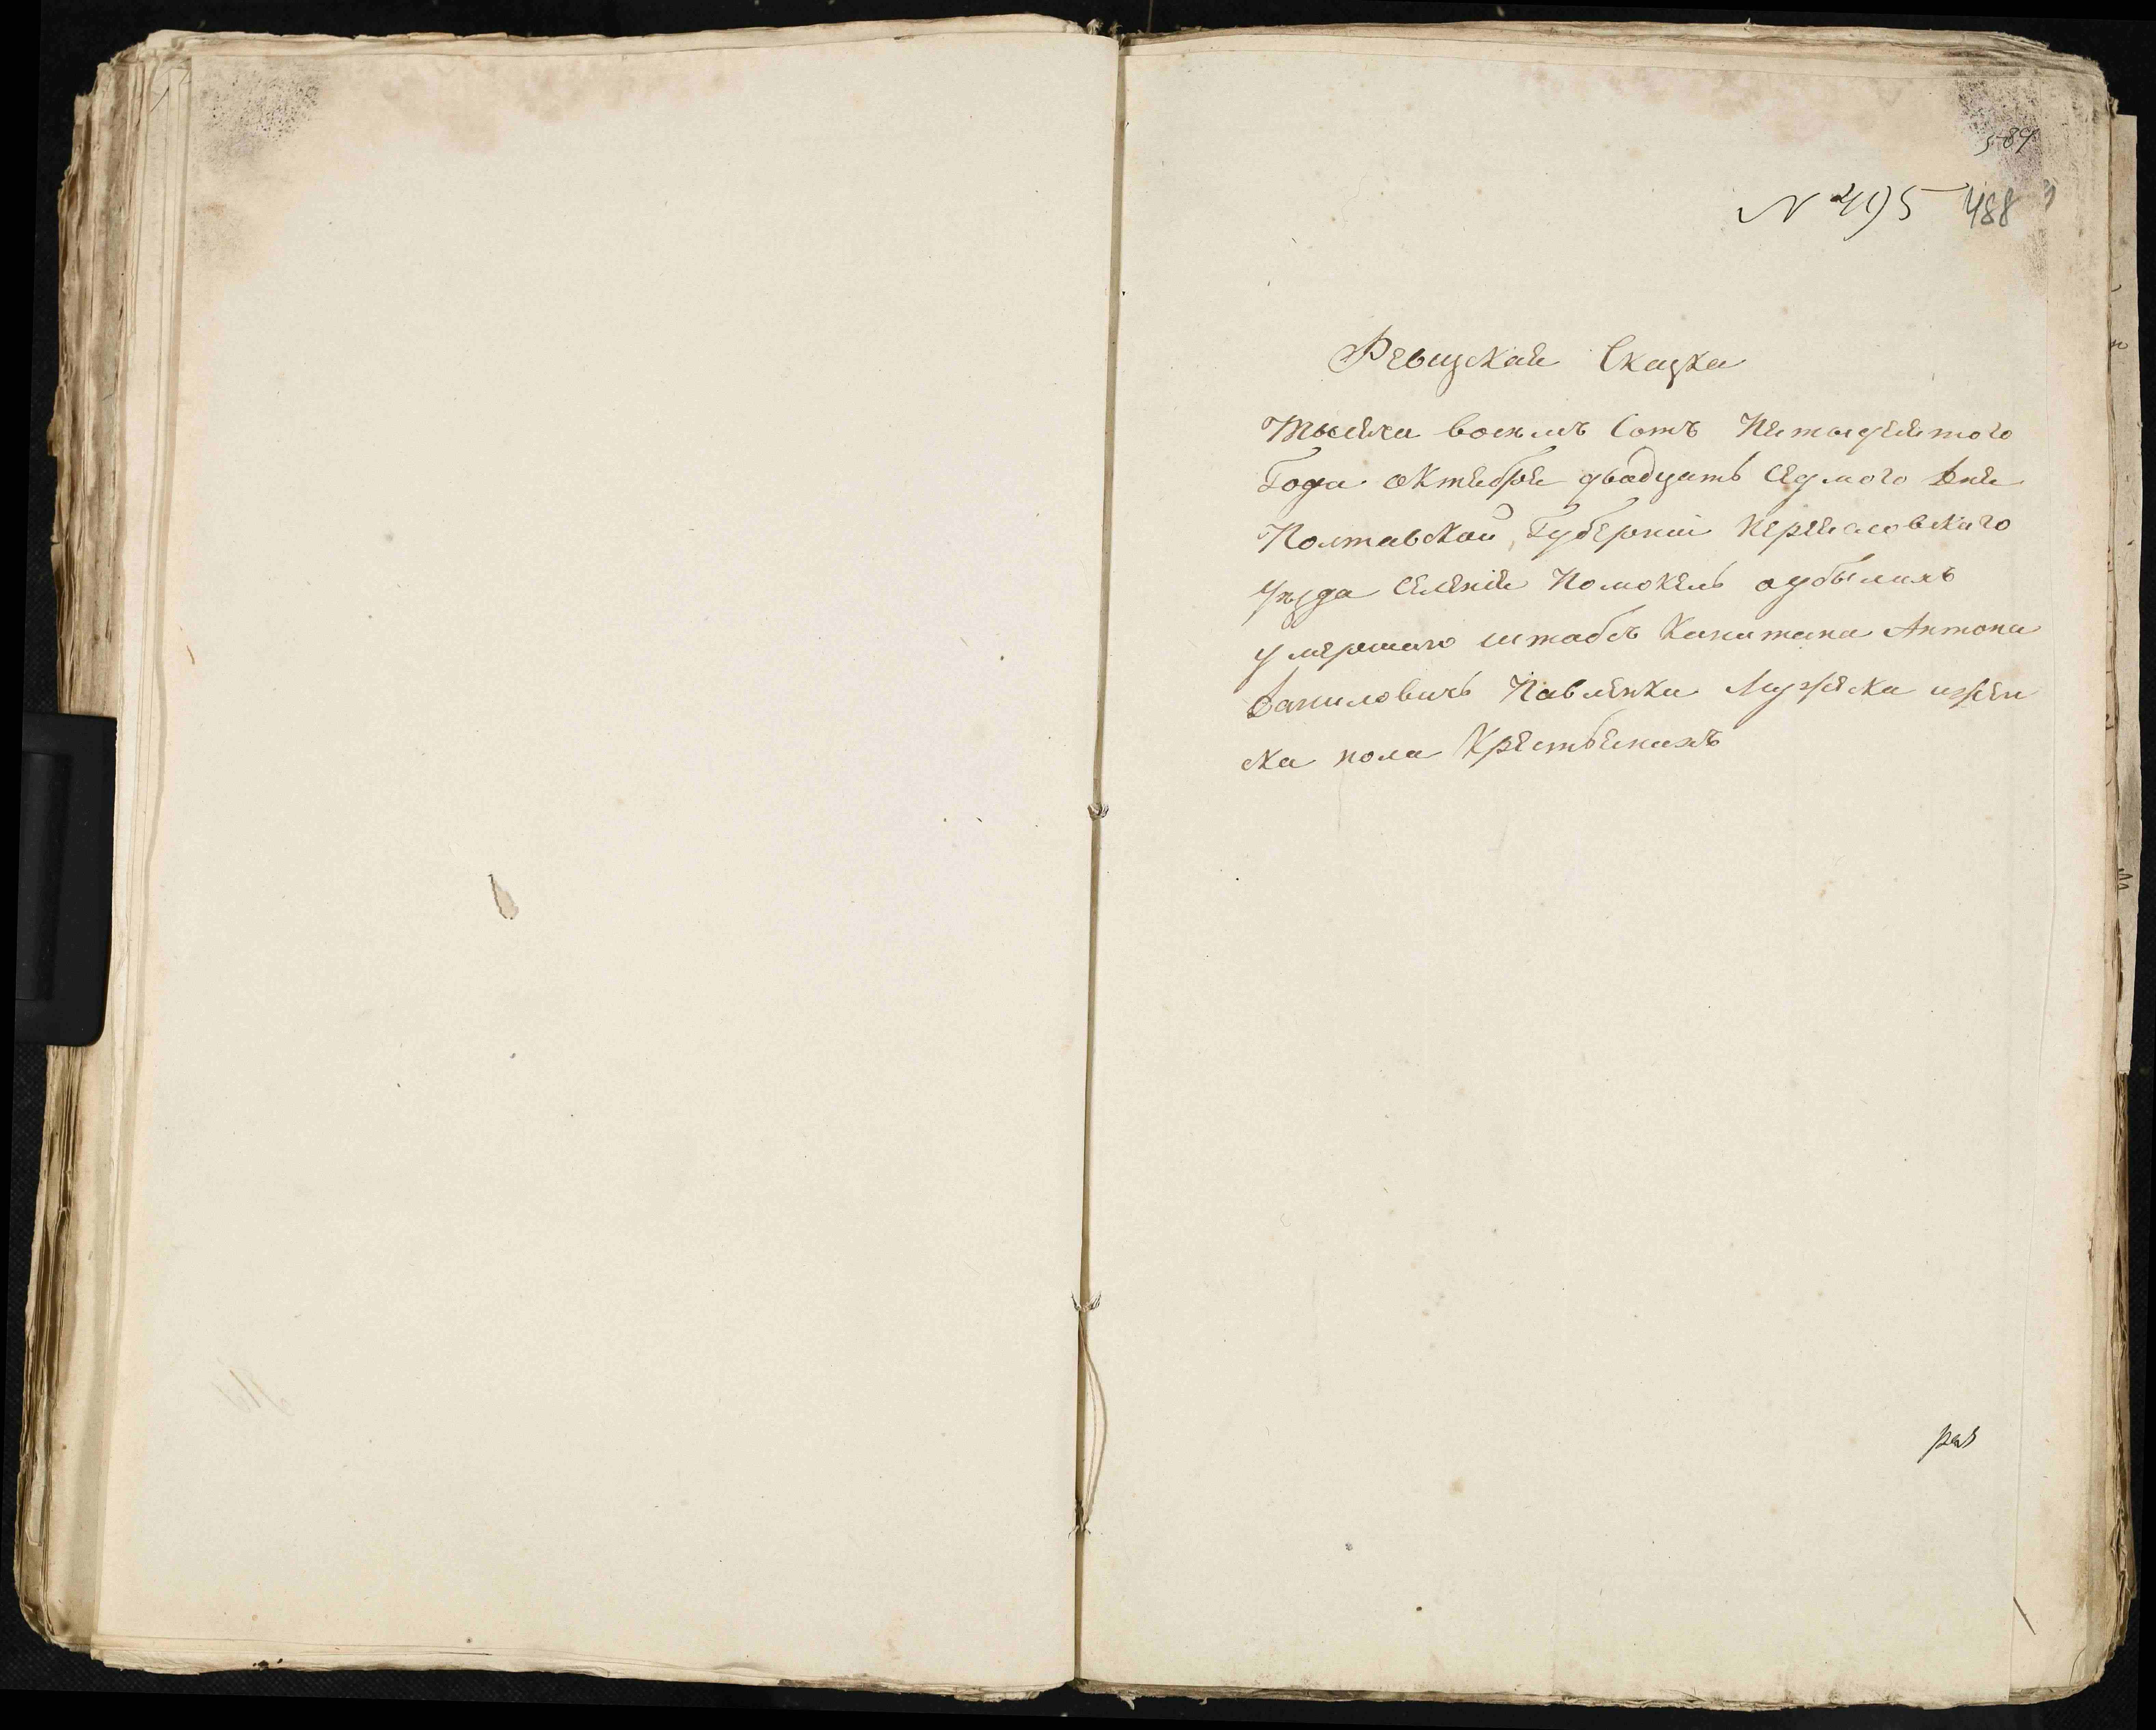 589
N 495 488
Ревизская Сказка
Тысяча восемъ Сотъ Пятыдесятого
Года октября двадцать седмого Дня
Полтавской Губернии Переясловскаго
уезда Селения Помокель
умершаго штабсъ Капитана Антона
Даниловичъ Павленка Мужеска ижен
ска пола Крестьянахъ